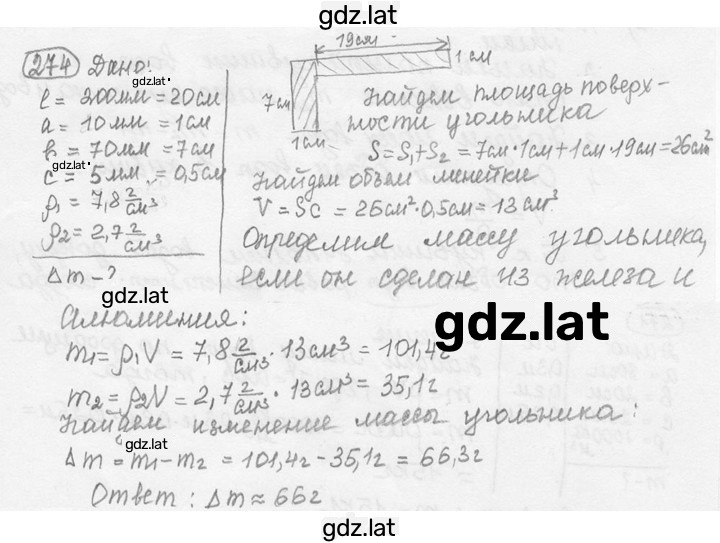 gdz.lat
274 Дано:
ℓ = 200мм = 20см
a = 10мм = 1см
b = 70мм = 7см
c = 5мм = 0,5см
ρ₁ = 7,8 г/см³
ρ₂ = 2,7 г/см³
Δm - ?
gdz.lat
gdz.lat
19см
1см
7см
1см
Найдем площадь поверх-
ности угольника
S = S₁ + S₂ = 7см · 1см + 1см · 19см = 26см²
Найдем объем линейки
V = Sc = 26см² · 0,5см = 13см³
Определим массу угольника,
если он сделан из железа и
gdz.lat
алюминия:
m₁ = ρ₁V = 7,8 г/см³ · 13см³ = 101,4г
m₂ = ρ₂V = 2,7 г/см³ · 13см³ = 35,1г
Найдем изменение массы угольника:
gdz.lat
Δm = m₁ - m₂ = 101,4г - 35,1г = 66,3г
Ответ: Δm ≈ 66г
gdz.lat